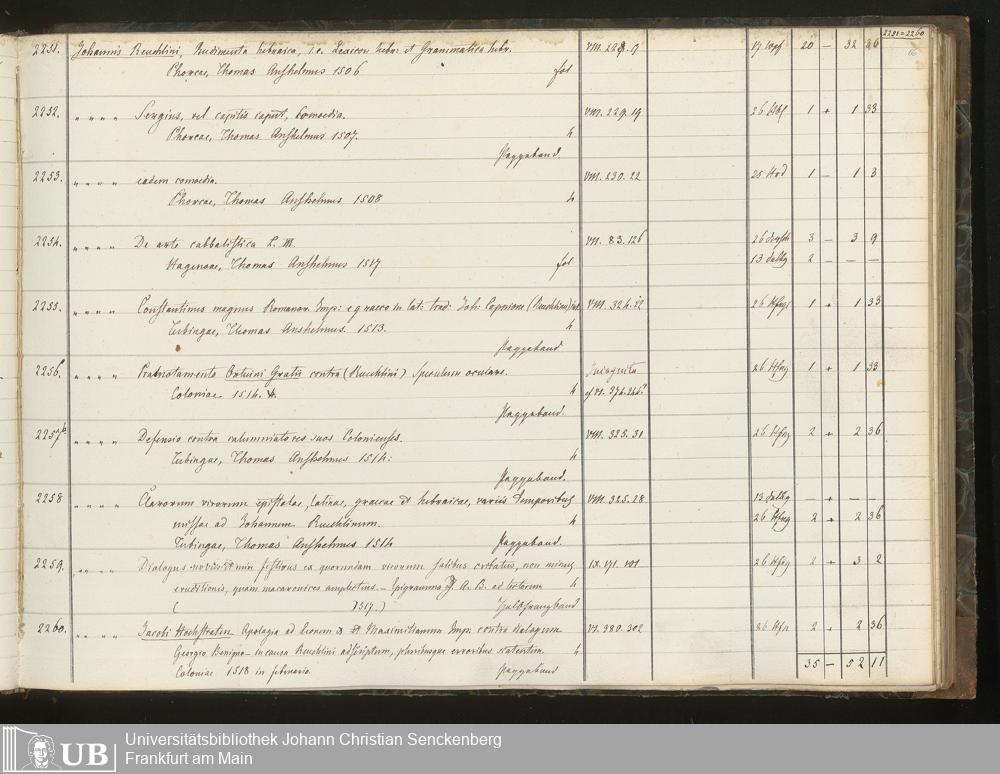 2251=2260
66
2251. Johannis Reuchlini, Rudimenta hebraica, i.e. Lexicon hebr: et Grammatica hebr. VM. 17 20 – 32 36
Phorcae, Thomas Anshelmus 1506 fol
2252. " " " " Sergius, vel capitis caput, comoedia. VM. 229. 19 26 1 + 1 33
Phorcae, Thomas Anshelmus 1507. 4
Pappeband.
2253. " " " " eadem comoedia. VM. 230. 22 25 1 – 1 3
Phorcae, Thomas Anshelmus 1508 4
2254. " " " " De arte cabbalistica L. III. VM. 83. 126 26 3 – 3 9
Hagenoae, Thomas Anshelmus 1517 fol 13 dalbg 2 – – –
2255. " " " " Constantinus magnus Romanor. Imp: e graeco in lat: trad: Joh: Capnione (Reuchlino) VM. 324. 26 1 + 1 33
Tubingae, Thomas Anshelmus. 1513. 4
Pappeband
2256. " " " " Praenotamenta Ortuini Gratii contra (Reuchlini) Speculum oculare. Incognita 26 1 + 1 33
Coloniae 1514. 4
Pappeband.
2257. " " " " Defensio contra calumniatores suos Colonienses. VM. 323. 31 26 2 + 2 36
Tubingae, Thomas Anshelmus 1514: 4
Pappeband.
2258 " " " " Clarorum virorum epistolae, latinae, graecae et hebraicae, variis temporibus VM. 385. 28 13 dalbg – + – –
missae ad Johannem Reuchlinum. 4 26 2 + 2 36
Tubingae, Thomas Anshelmus 1514 Pappeband.
2259. " " " " Dialogus festivus ex quorundam virorum salibus cribratus, non minus 26 2 + 3 2
eruditionis, quam macaronices amplectens. – Epigramma A. B. ad lectorem 4
( 1517.) Halbfranzband
2260. " " " " Jacobi Hochstraten Apologia ad Leonem X et Maximilianum Imp: contra dialogum VI. 380. 302 26 2 + 2 36
Georgio Benigno – in causa Reuchlini adscriptum, pluribusque erroribus scatentem. 4
Coloniae 1518 in februario. Pappeband
35 – 52 11
UB
Universitätsbibliothek Johann Christian Senckenberg
Frankfurt am Main